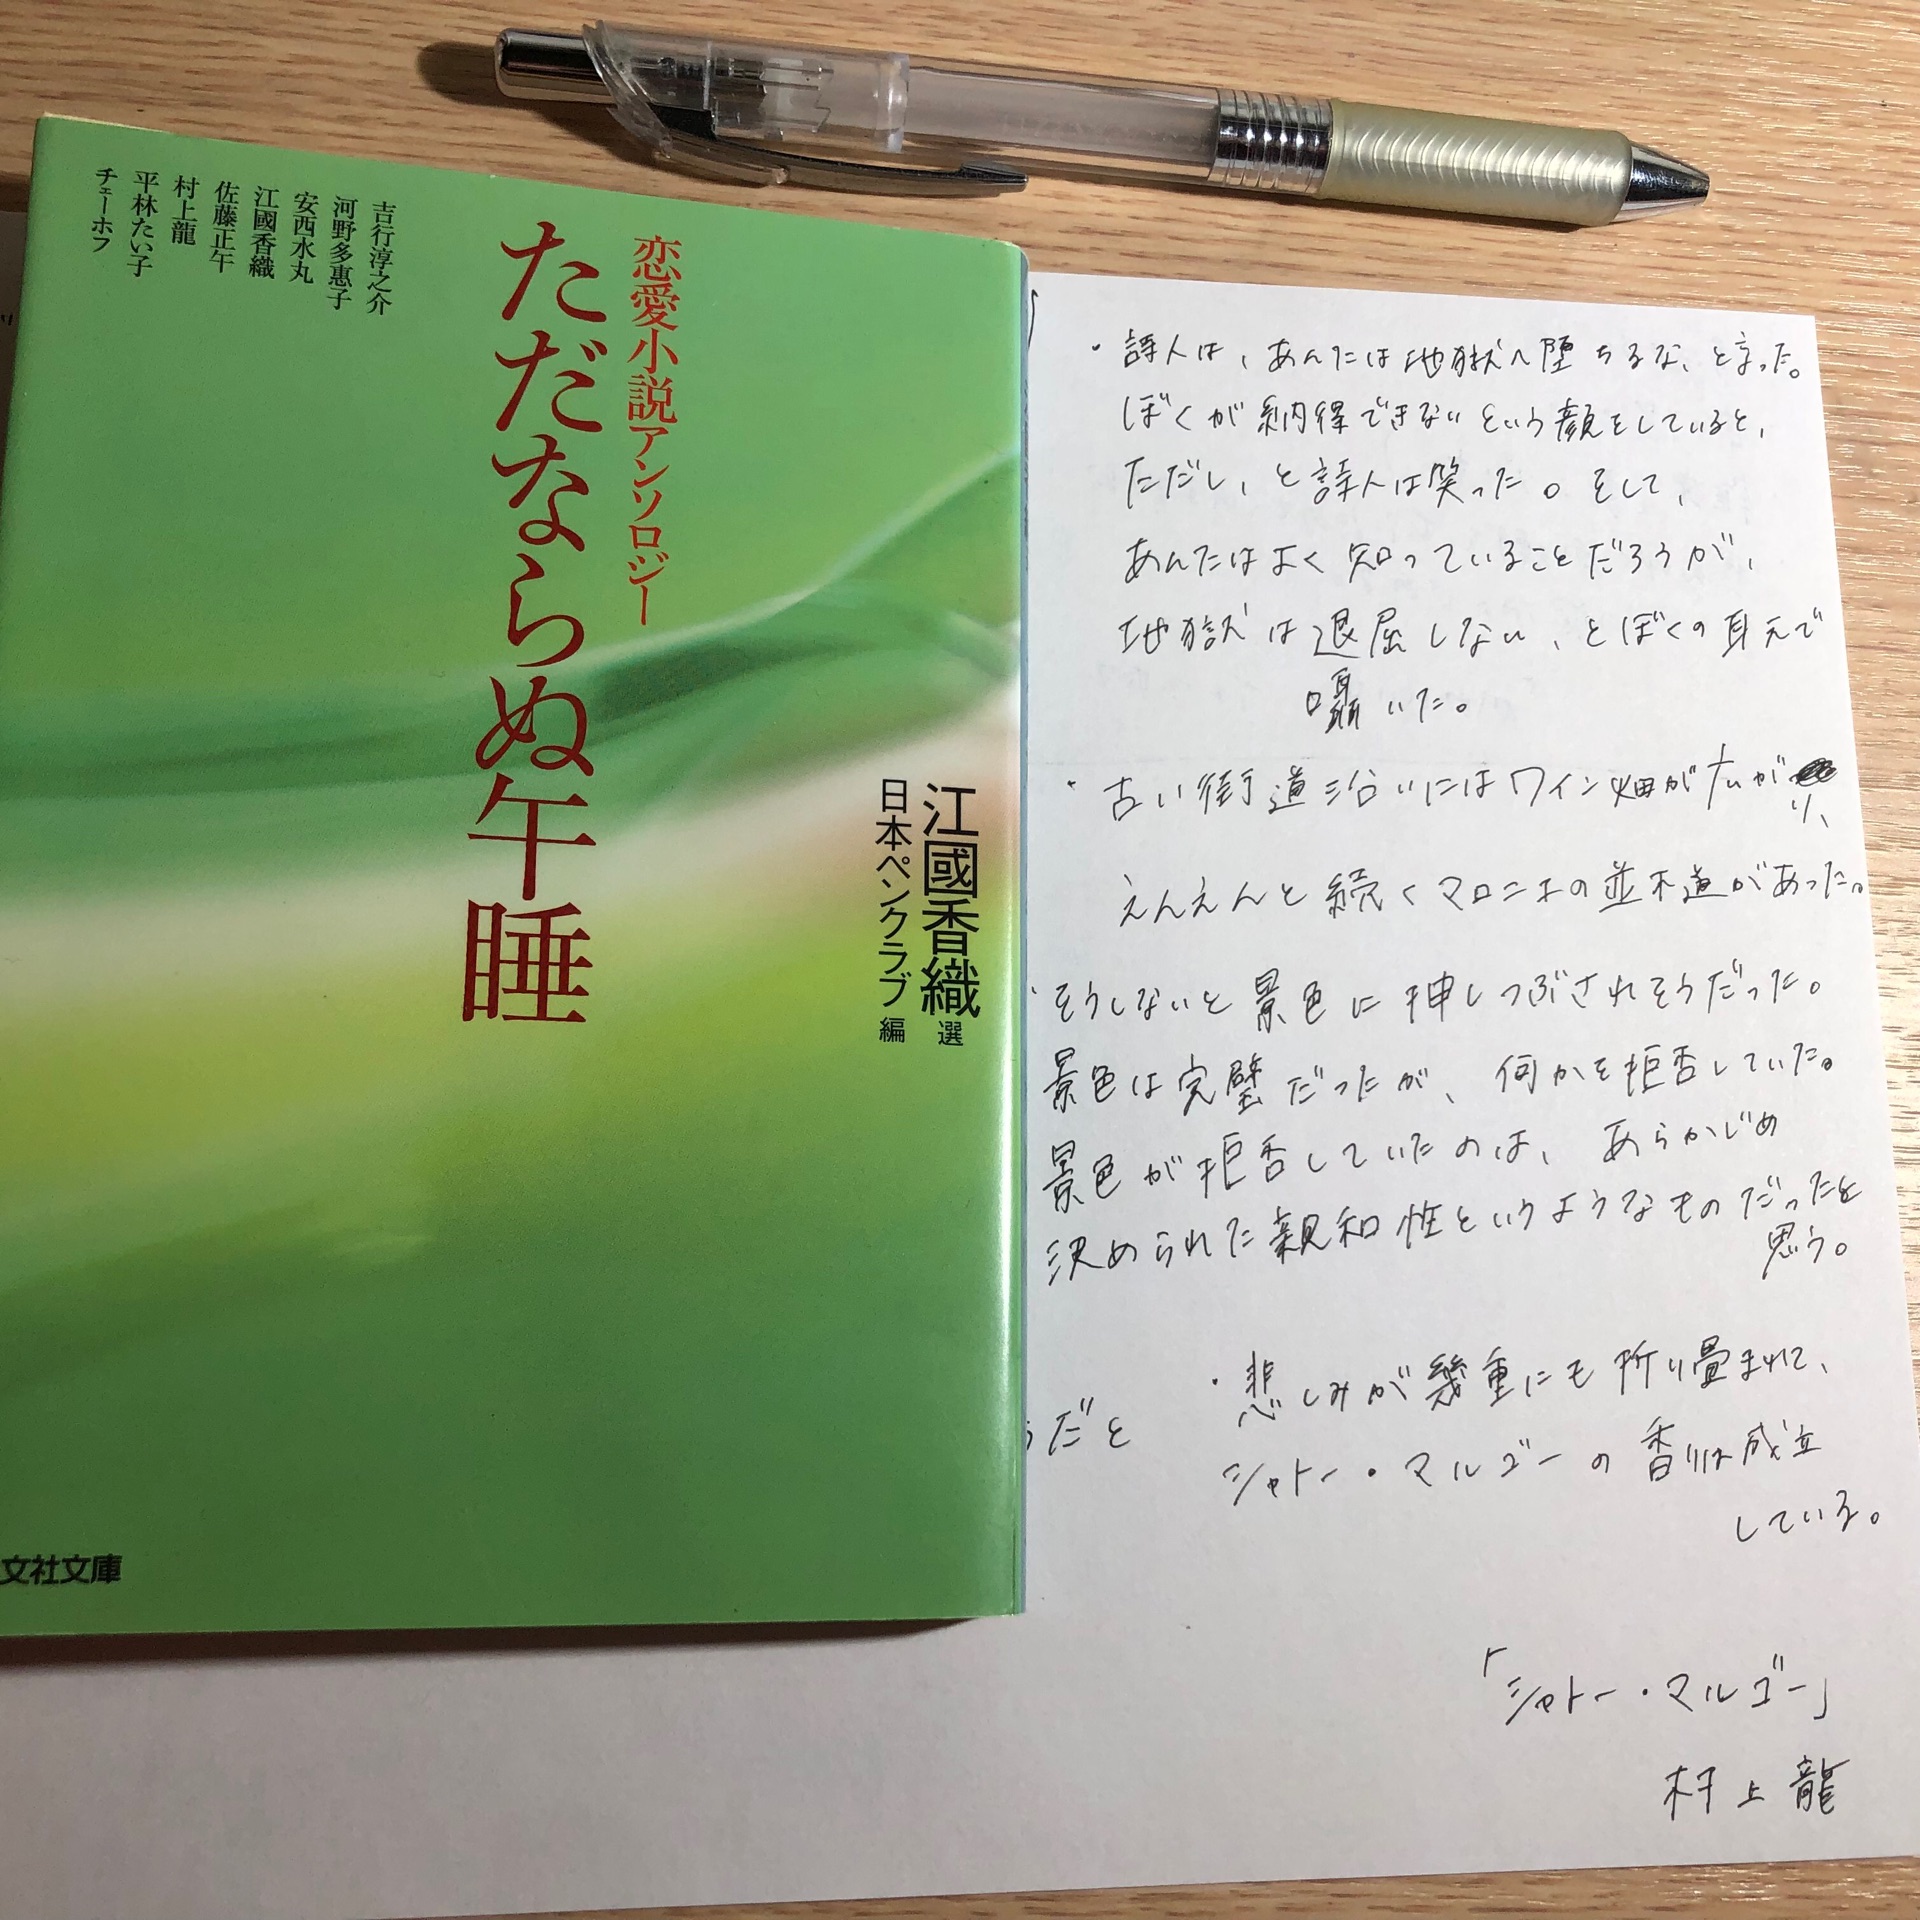 恋愛小説アンソロジー
ただならぬ午睡
江國香織 選
日本ペンクラブ 編
吉行淳之介
河野多惠子
安西水丸
江國香織
佐藤正午
村上龍
平林たい子
チェーホフ
文社文庫
・詩人は、あんたは地獄へ堕ちるな、と言った。
ぼくが納得できないという顔をしていると、
ただし、と詩人は笑った。そして、
あんたはよく知っていることだろうが、
地獄は退屈しない、とぼくの耳元で
囁いた。
・古い街道沿いにはワイン畑が広がり、
えんえんと続くマロニエの並木道があった。
・そうしないと景色に押しつぶされそうだった。
景色は完璧だったが、何かを拒否していた。
景色が拒否していたのは、あらかじめ
決められた親和性というようなものだったと
思う。
・悲しみが幾重にも折り畳まれて、
うだと
シャトー・マルゴーの香りは成立
している。
「シャトー・マルゴー」
村上龍